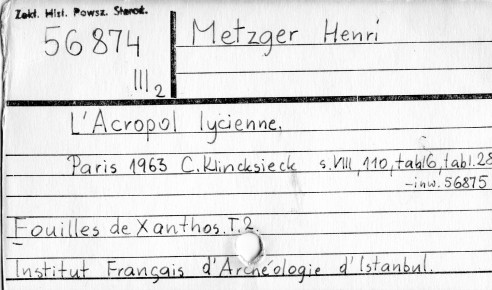 Zakł. Hist. Powsz. Staroż.
56874
III 2
Metzger Henri
L'Acropol lycienne.
Paris 1963 C.Klincksieck s.VIII,110,tabl6,tabl.28
-inw. 56875
Fouilles de Xanthos.T.2.
Institut Français d'Archéologie d'Istanbul.